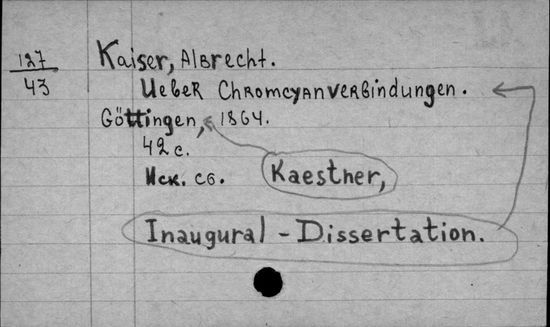 127
43
Kaiser, Albrecht.
Ueber Chromcyanverbindungen.
Göttingen, 1864.
42 с.
Иск. сб.
Kaestner,
Inaugural - Dissertation.